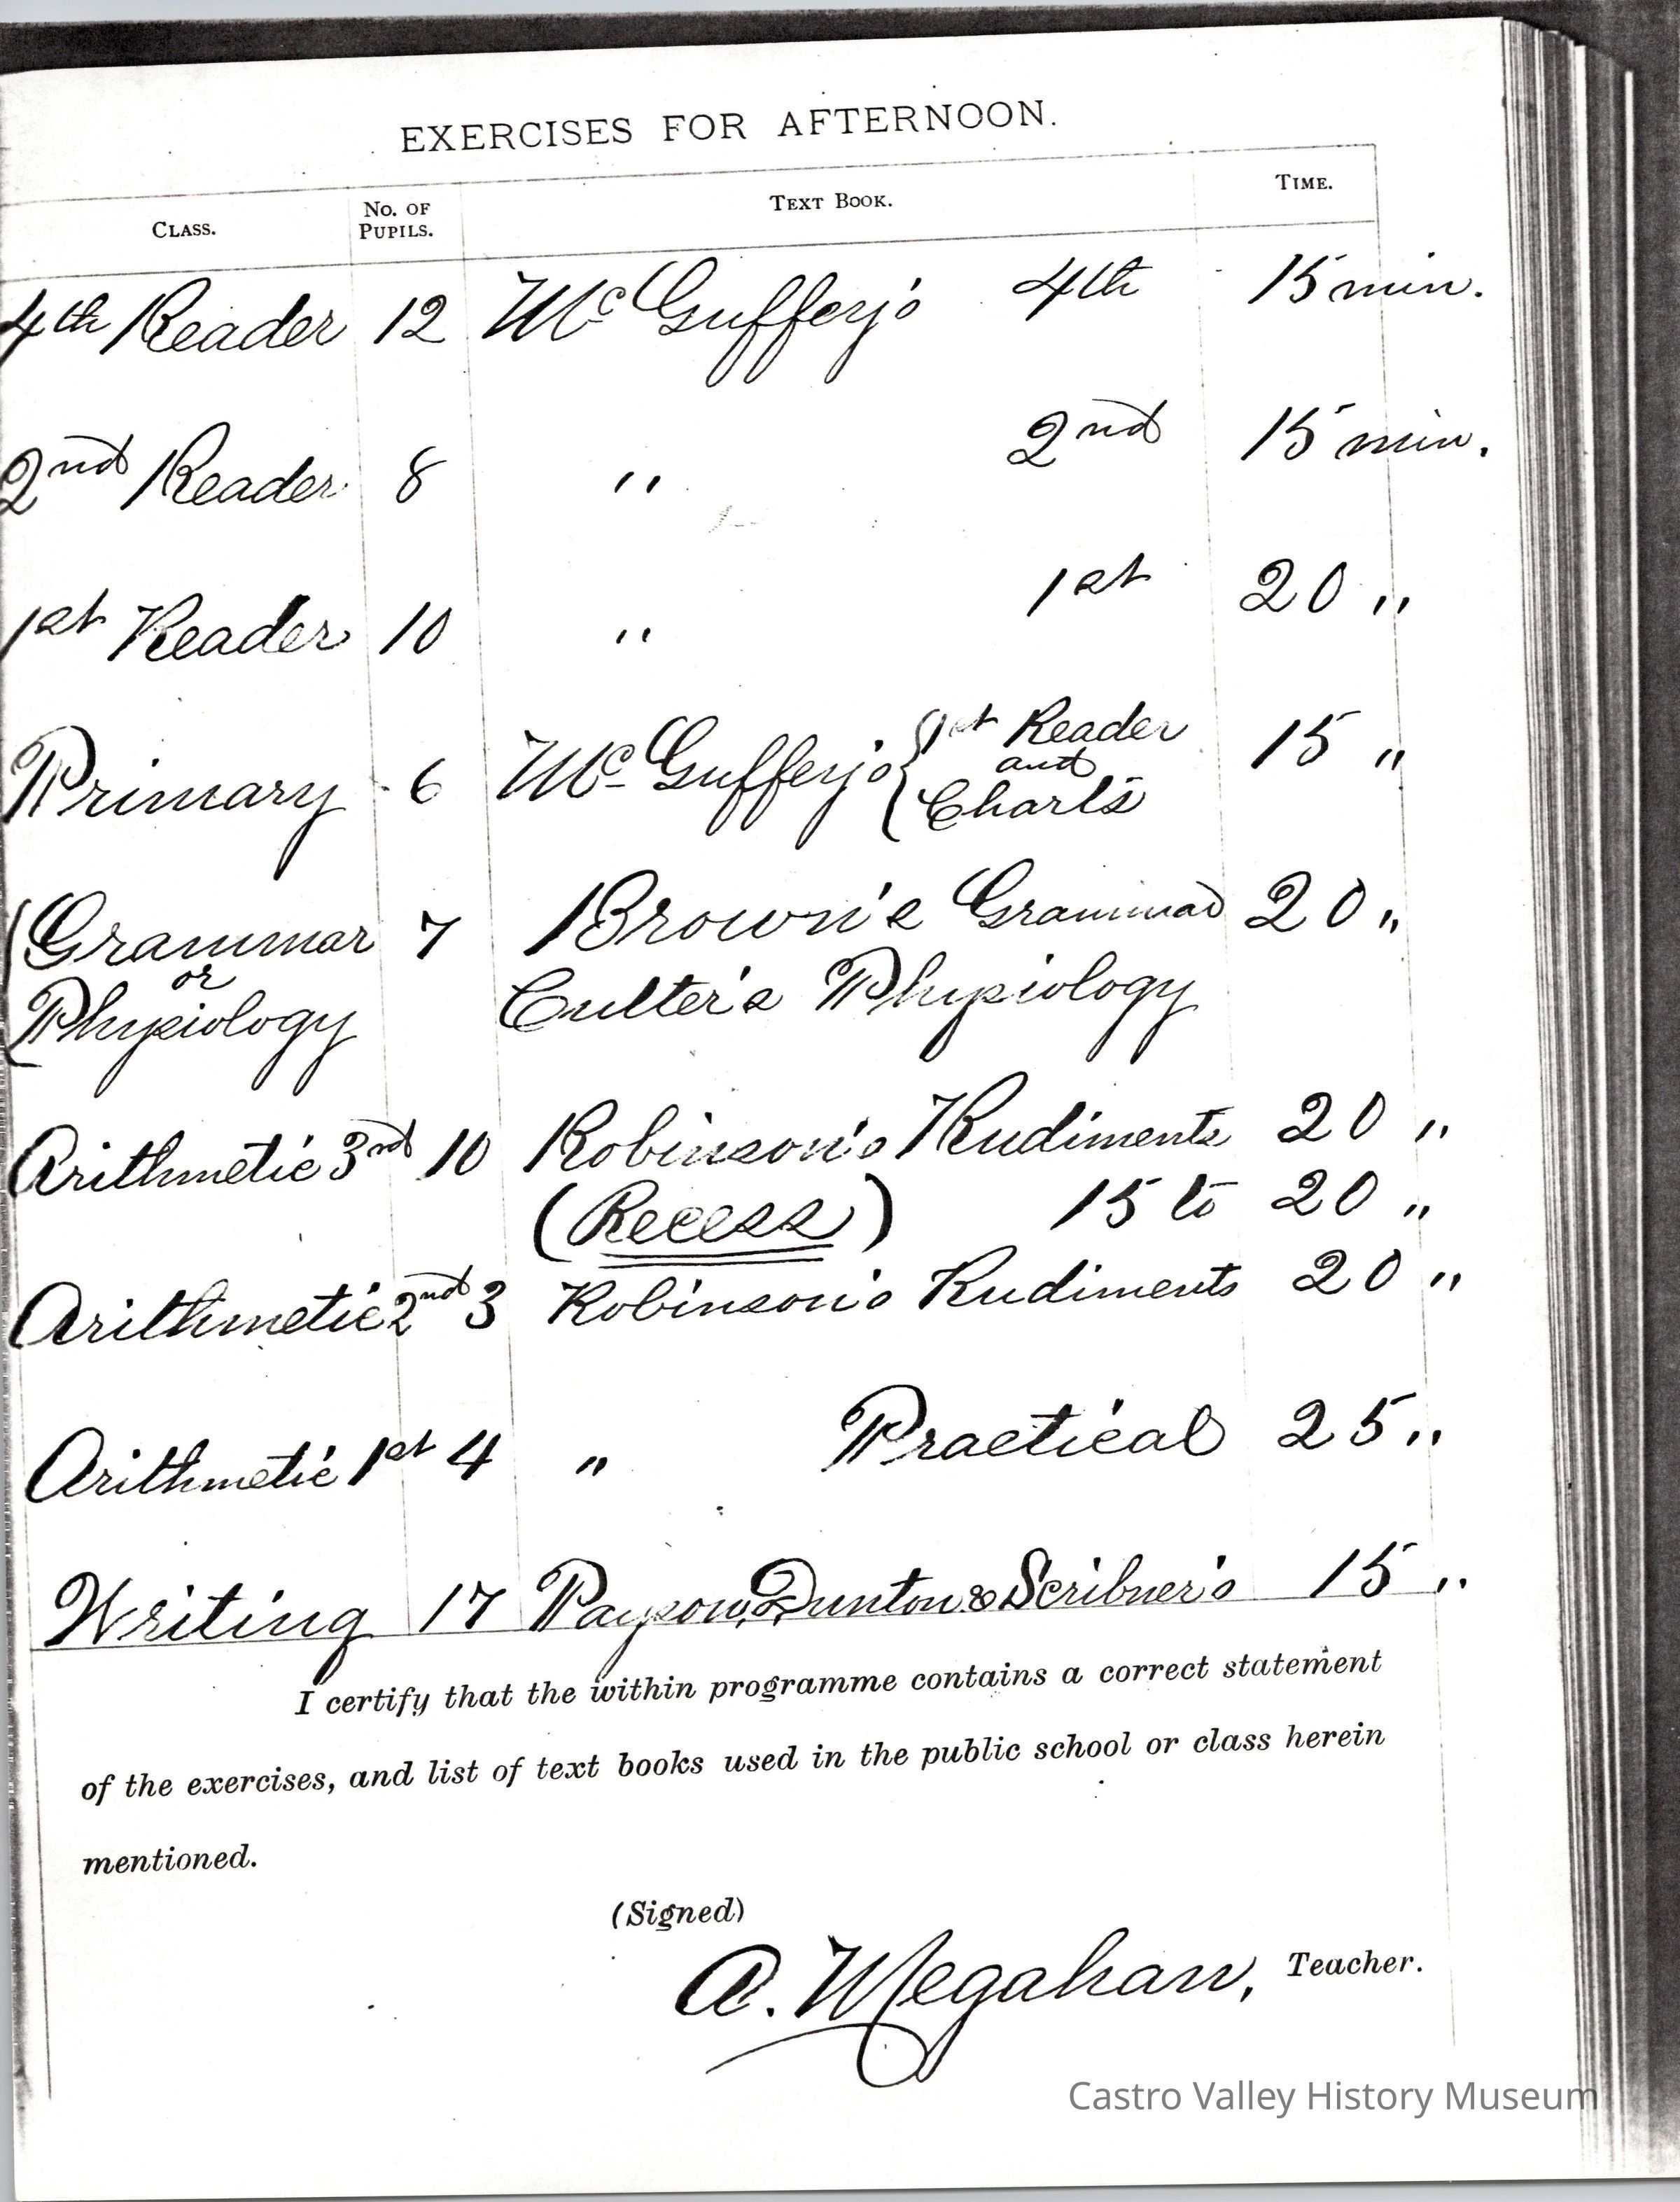 EXERCISES FOR AFTERNOON.
CLASS. No. OF PUPILS. TEXT BOOK. TIME.
4th Reader 12 McGuffey's 4th 15 min.
2nd Reader 8 " 2nd 15 min.
1st Reader 10 " 1st 20 "
Primary 6 McGuffey's { 1st Reader and Charts 15 "
(Grammar 7 Brown's Grammar 20 "
or
Physiology Culter's Physiology
Arithmetic 3rd 10 Robinson's Rudiments 20 "
(Recess) 15 to 20 "
Arithmetic 2nd 3 Robinson's Rudiments 20 "
Arithmetic 1st 4 " Practical 25 "
Writing 17 Payson, Dunton & Scribner's 15 "
I certify that the within programme contains a correct statement
of the exercises, and list of text books used in the public school or class herein
mentioned.
(Signed)
A. Megahan, Teacher.
Castro Valley History Museum